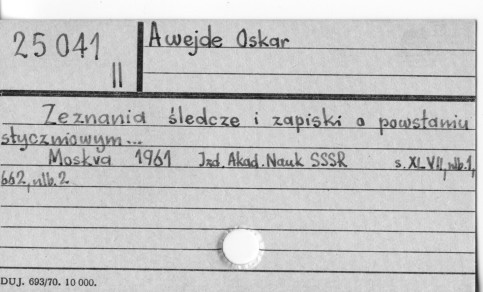 25041
II
Awejde Oskar
Zeznania śledcze i zapiski o powstaniu
styczniowym...
Moskva 1961 Izd. Akad. Nauk SSSR s. XLVII, nlb. 1,
662, nlb. 2
DUJ. 693/70. 10 000.